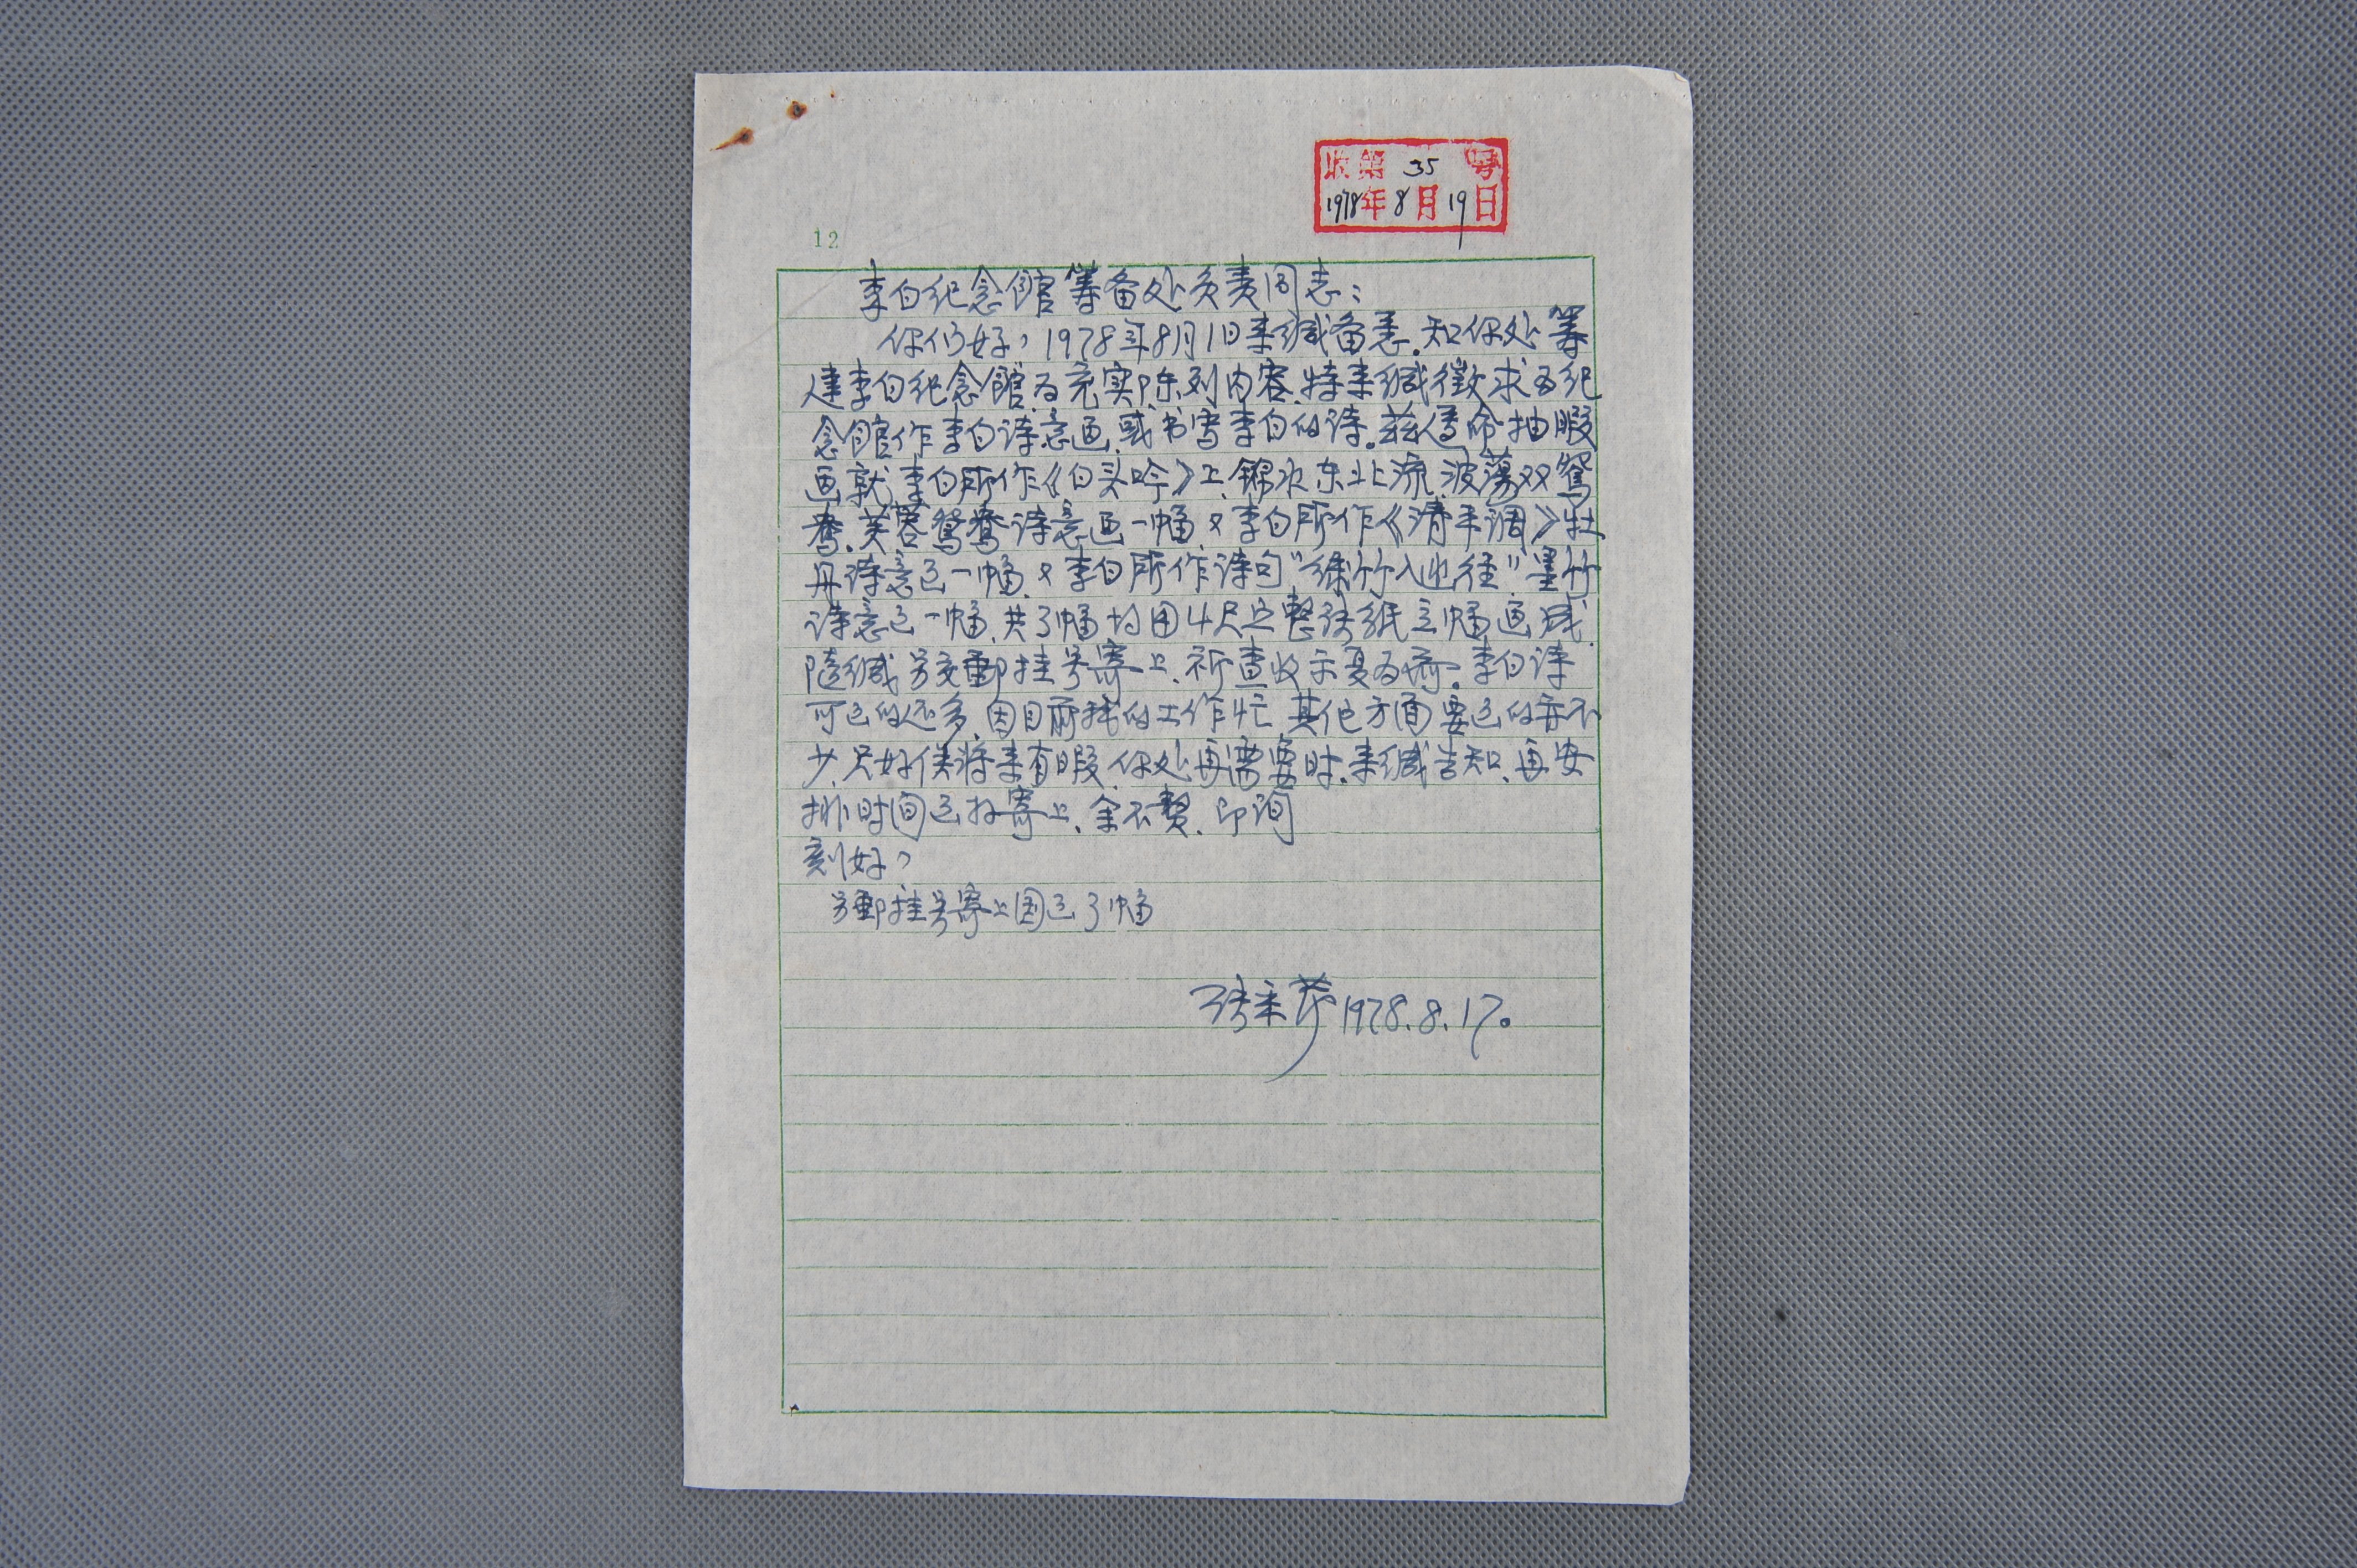 收第 35 号
1978年8月19日
12
李白纪念館筹备处负责同志：
你们好，1978年8月1日来缄备悉.知你处筹
建李白纪念館,为充实陈列内容.特来缄徵求为纪
念館作李白诗意画,或书写李白的诗。兹遵命抽暇
画就,李白所作《白头吟》上,锦水东北流,波荡双鴛
鴦.芙蓉鴛鴦诗意画一幅,又李白所作《清平调》牡
丹诗意画一幅.又李白所作诗句"绿竹入幽径"墨竹
诗意画一幅,共3幅均用4尺之整张纸立幅画成.
随缄另交郵挂号寄上.祈查收示复为荷.李白诗
可画的还多,因目前我的工作忙 其他方面要画的亦不
少.只好俟将来有暇,你处再需要时.来缄告知.再安
排时间画好寄上.余不赘.即询
刻好，
另郵挂号寄上国画3幅
张采芹1978.8.17。